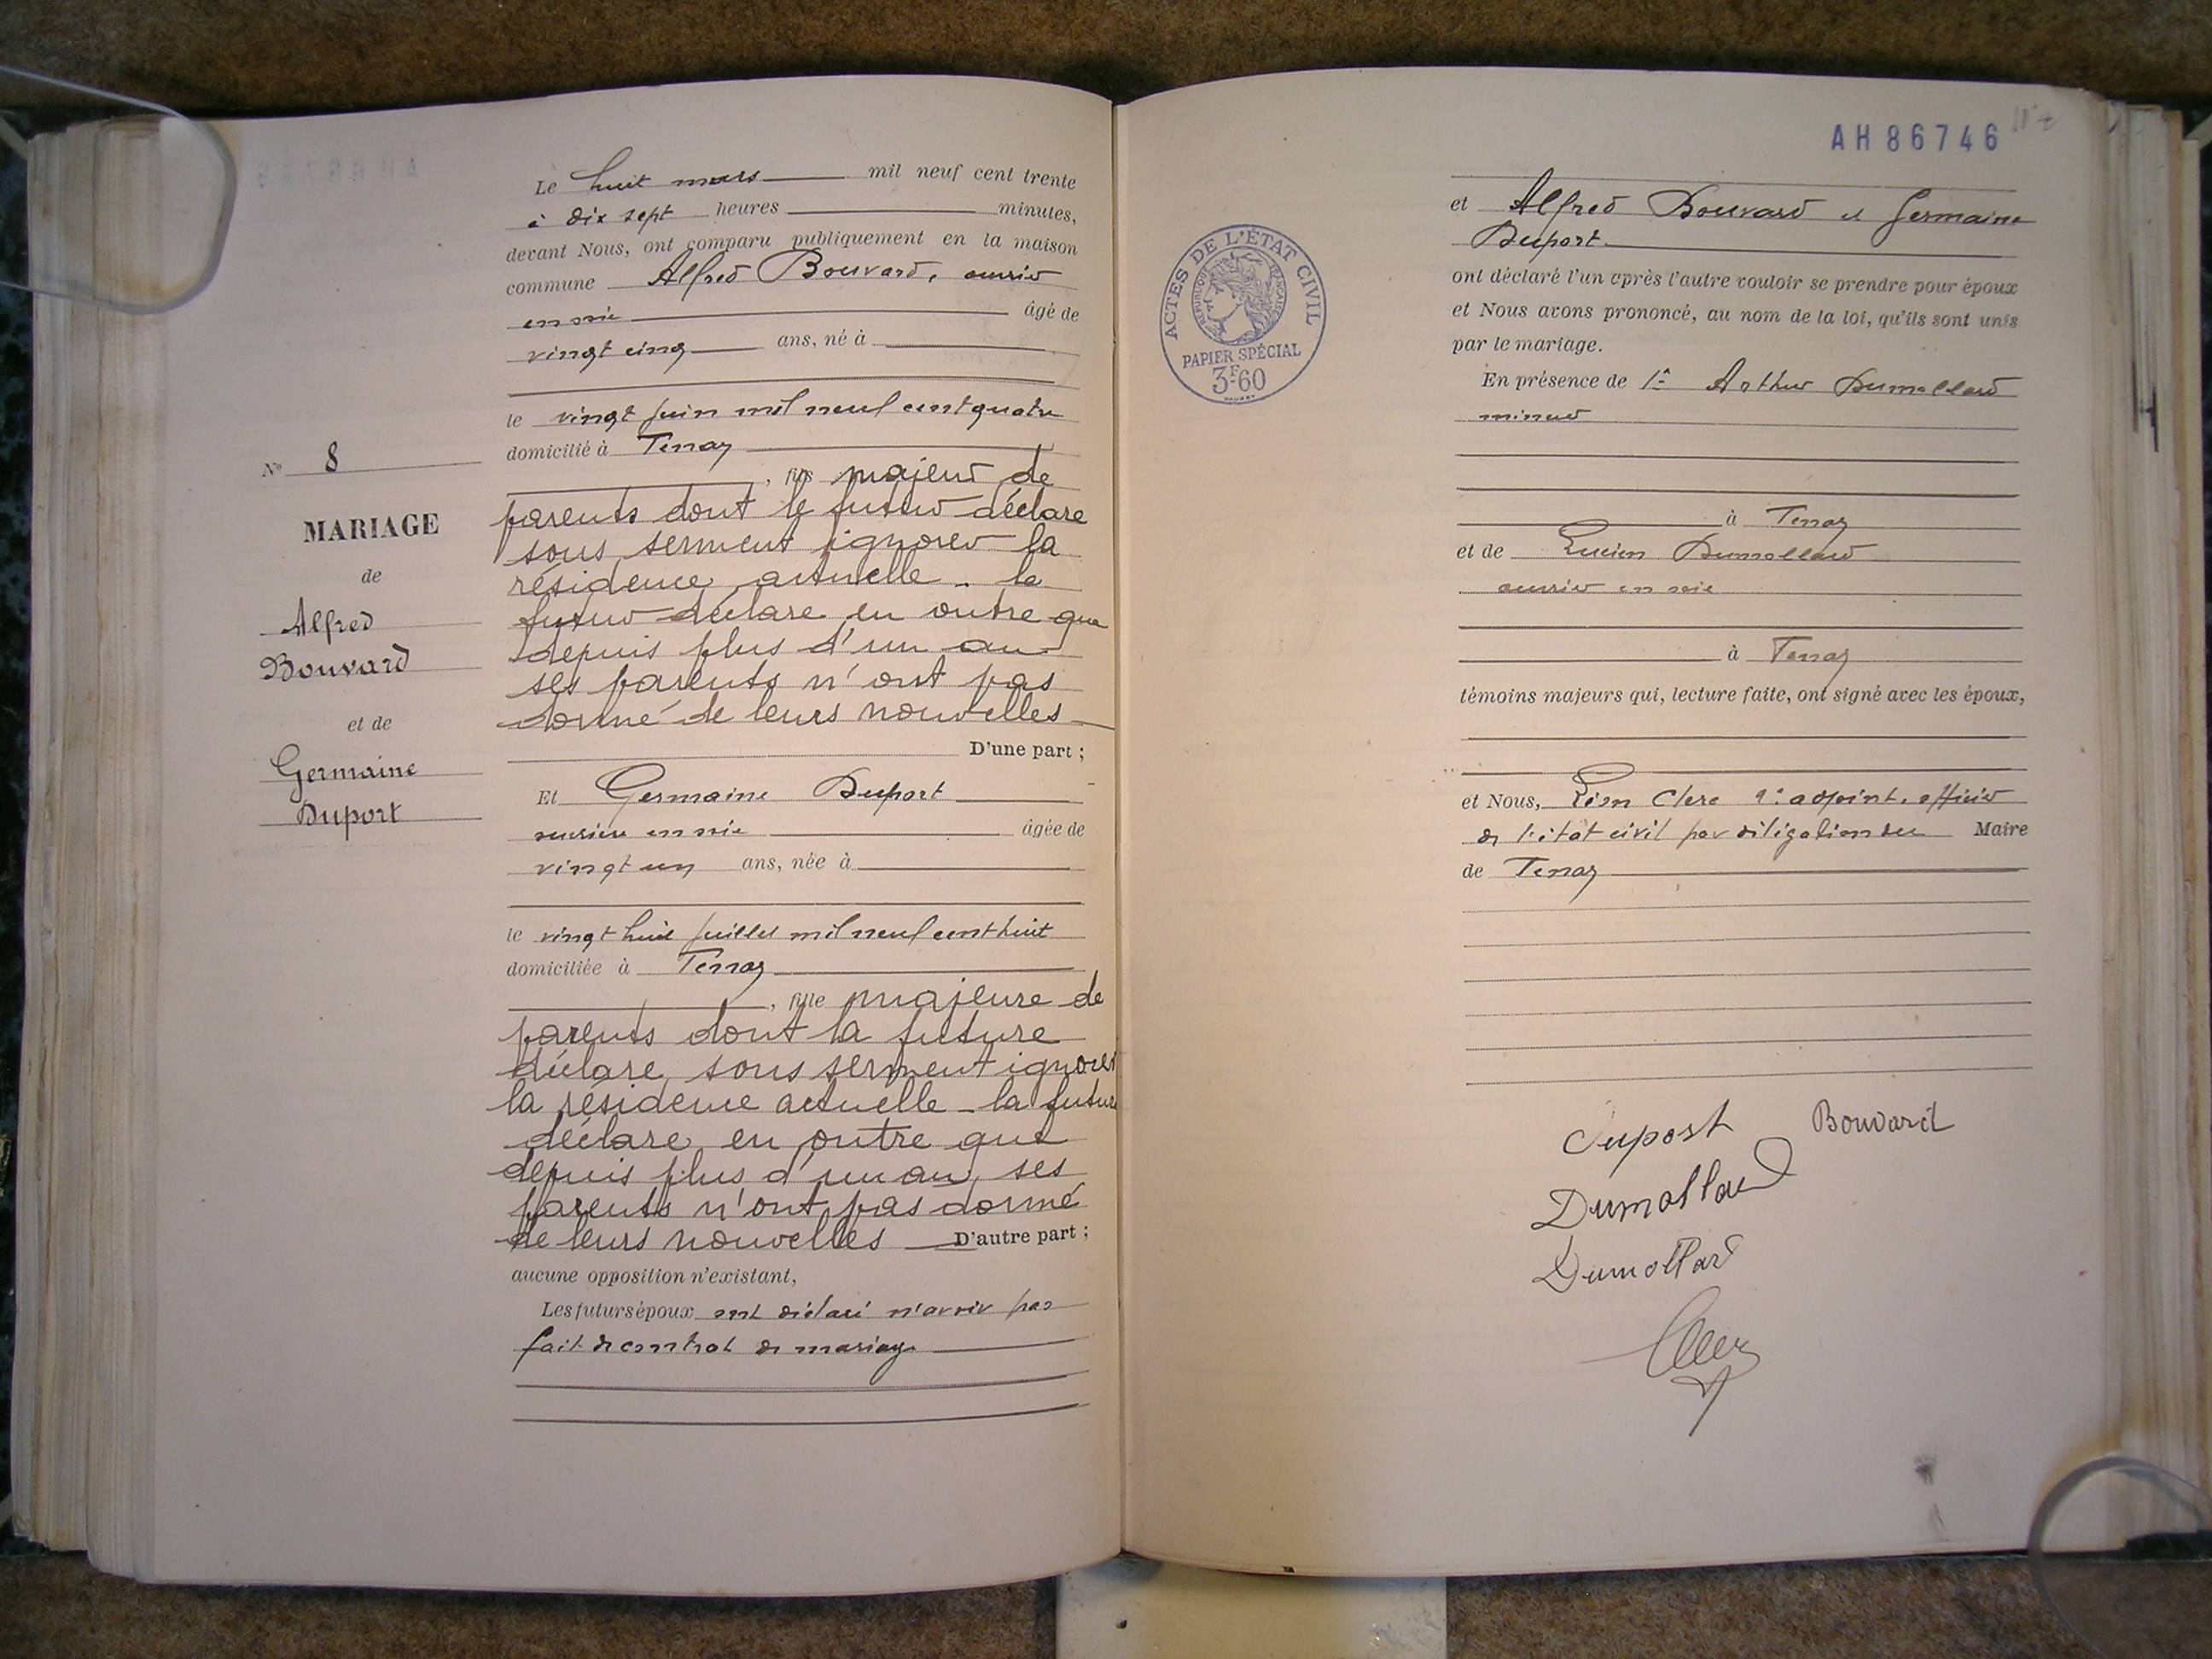 Le huit mars mil neuf cent trente
à dix sept heures minutes,
devant Nous, ont comparu publiquement en la maison
commune Alfred Bouvard, ouvrier
en soie âgé de
vingt cinq ans, né à
le vingt juin mil neuf cent quatre
domicilié à Tenay
, fils majeur de
parents dont le futur déclare
sous serment ignorer la
résidence actuelle. le
futur déclare en outre que
depuis plus d'un an
ses parents n'ont pas
donné de leurs nouvelles
D'une part ;
Et Germaine Duport
ouvrière en soie âgée de
vingt un ans, née à
le vingt huit juillet mil neuf cent huit
domiciliée à Tenay
, fille majeure de
parents dont la future
déclare sous serment ignorer
la résidence actuelle - la future
déclare en outre que
depuis plus d'un an, ses
parents n'ont pas donné
de leurs nouvelles D'autre part ;
aucune opposition n'existant,
Les futurs époux ont déclaré n'avoir pas
fait de contrat de mariage
N° 8
MARIAGE
de
Alfred
Bouvard
et de
Germaine
Duport
AH86746
et Alfred Bouvard et Germaine
Duport
ont déclaré l'un après l'autre vouloir se prendre pour époux
et Nous avons prononcé, au nom de la loi, qu'ils sont unis
par le mariage.
En présence de Arthur Dumollard
mineur
à Tenay
et de Lucien Dumollard
ouvrier en soie
à Tenay
témoins majeurs qui, lecture faite, ont signé avec les époux,
et Nous, Léon Clerc adjoint, officier
de l'état civil par délégation du Maire
de Tenay
ACTES DE L'ÉTAT CIVIL
RÉPUBLIQUE FRANÇAISE
PAPIER SPÉCIAL
3F60
Duport Bouvard
Dumollard
Dumollard
Clerc